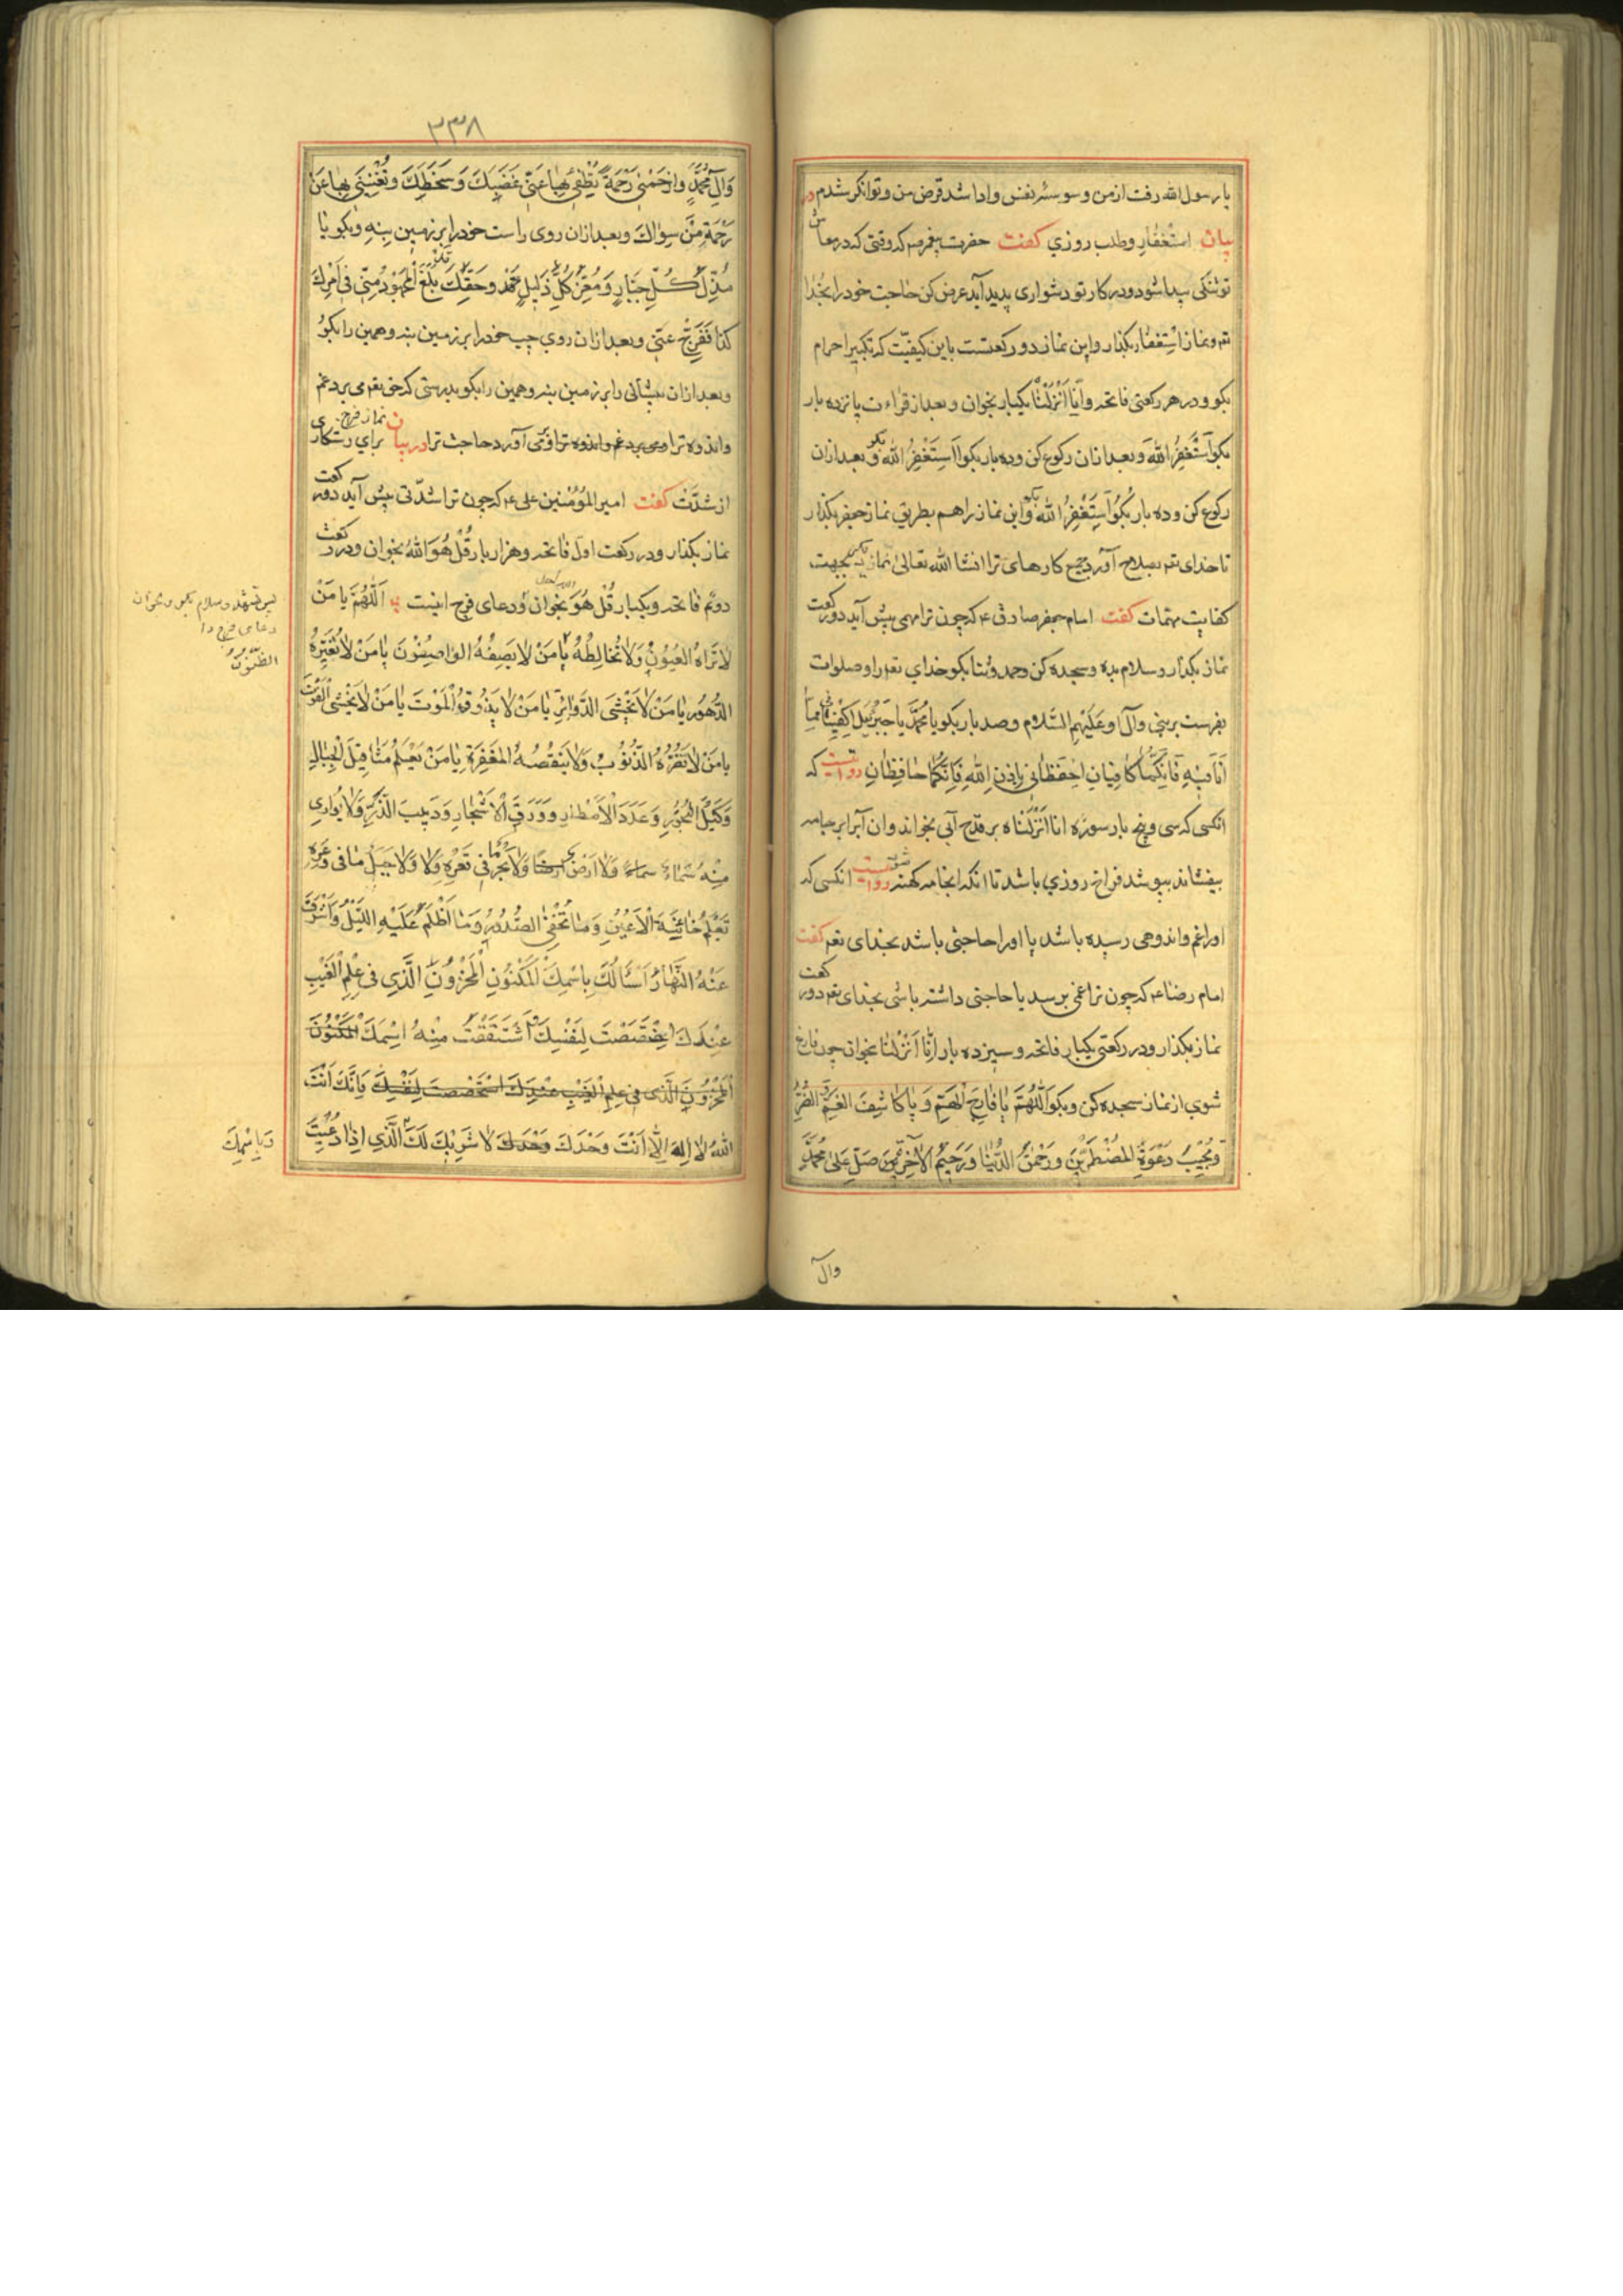 یا رسول الله رفت از من وسوسه نفس و ادا شد قرض من و توانکر شدم در
بیان استغفار و طلب روزي کفت حضرت پیغمبر صم که وقتی که در معاش
تو تنکی پیدا شود و در کار تو دشواری پدید آید عرض کن حاجت خود را بخدا
تعم و نماز استغفار بکذار و این نماز دو رکعتست باین کیفیّت که تکبیر احرام
بکو و در هر رکعتی فاتحه و انا انزلنا یکبار بخوان و بعد از قراءت پانزده بار
بکو استغفر الله و بعد ازان رکوع کن و ده بار بکو استغفر الله و بعد ازان
رکوع کن و ده بار بکو استغفر الله و این نماز را هم بطریق نماز جعفر بکذار
تا خدای تعم بصلاح آورد جمیع کارهای ترا انشا الله تعالی نماز بجهت
کفایت مهمّات کفت امام جعفر صادق ع که چون ترا مهمی پیش آید دو رکعت
نماز بکذار و سلام بده و سجده کن و حمد و ثنا بکو خدای تعم را و صلوات
بفرست بر نبی و آل او علیهم السّلام و صد بار بکو یا محمّد یا جبرئیل اکفیانی ممّا
انا فیه فانّکما کافیان احفظانی باذن الله فانّکما حافظان روایتست که
انکسی که سی و پنج بار سورۀ انا انزلناه بر قدح آبی بخواند و ان آبرا بر جامه
بیفشاند بپوشد فراخ روزي باشد تا انکه انجامه کهنه شود روایتست انکسی که
او را غم و اندوهی رسیده باشد یا او را حاجتی باشد بخدای تعم کفت
امام رضا ع که چون ترا غمی برسد یا حاجتی داشته باشی بخدای تعم دو رکعت
نماز بکذار و در رکعتی یکبار فاتحه و سیزده بار انّا انزلنا بخوان چون فارغ
شوي از نماز سجده کن و بکو اللّهمّ یا فارج الهمّ و یا کاشف الغمّ
و مجیب دعوة المضطرین و رحمن الدّنیا و رحیم الآخرة صلّ علی محمّد
وآل
٣٣٨
وآل محمّد وارحمنی رحمة تطفئ بها عنّی غضبک و سخطک و تغنینی بها عن
رحمة من سواک و بعد ازان روی راست خود را بر زمین بنه و بکو یا
مذلّ کلّ جبّار و معزّ کلّ ذلیل و حقّک بلغ المجهود منّی فی امر
کذا ففرّج عنّی و بعد ازان روي چپ خود را بر زمین بنه و همین را بکو
و بعد ازان پیشانی را بر زمین بنه و همین را بکو بدرستی که حق تعم می برد غم
و اندوه ترا و می آورد حاجت ترا در بیان نماز فرج برای رستکاری
از شدّت کفت امیر المؤمنین علی ع که چون ترا شدّتی پیش آید دو رکعت
نماز بکذار و در رکعت اول فاتحه و هزار بار قل هو الله بخوان و در رکعت
دوّم فاتحه و یکبار قل هو بخوان و دعای فرج اینست اللّهمّ یا من
لا تراه العیون و لا تخالطه یا من لا یصفه الواصفون یا من لا تغیّره
الدّهور یا من لا یخشی الدّوائر یا من لا یذوق الموت یا من لا یخشی الفوت
یا من لا تضرّه الذّنوب و لا ینقصه المغفرة یا من یعلم مثاقیل الجبال
و کیل البحور و عدد الامطار و ورق الاشجار و دبیب الذّرّ و لا یواری
منه سماء سماء و لا ارض ارضا و لا بحر ما فی قعره و لا جبل ما فی وعره
تعلم خائنة الاعین و ما تخفی الصّدور و ما اظلم علیه اللّیل و اشرق
عنه النّهار اسألک باسمک المکنون المخزون الّذی فی علم الغیب
عندک اختصصت لنفسک اشتققت منه اسمک المکنون
المخزون الّذی فی علم الغیب عندک استخصصت لنفسک فانّک انت
الله لا اله الّا انت وحدک وحدک لا شریک لک الّذی اذا دعیت
پس تشهد و سلام بکو و بخوان
دعای فرج را
الظّنون
وباسمک